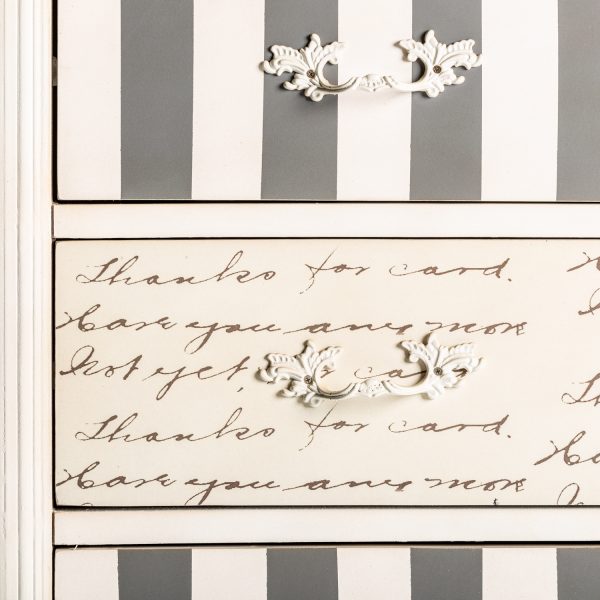 Thanks for card.
Have you any more
Not yet,
Thanks for card.
Have you any more